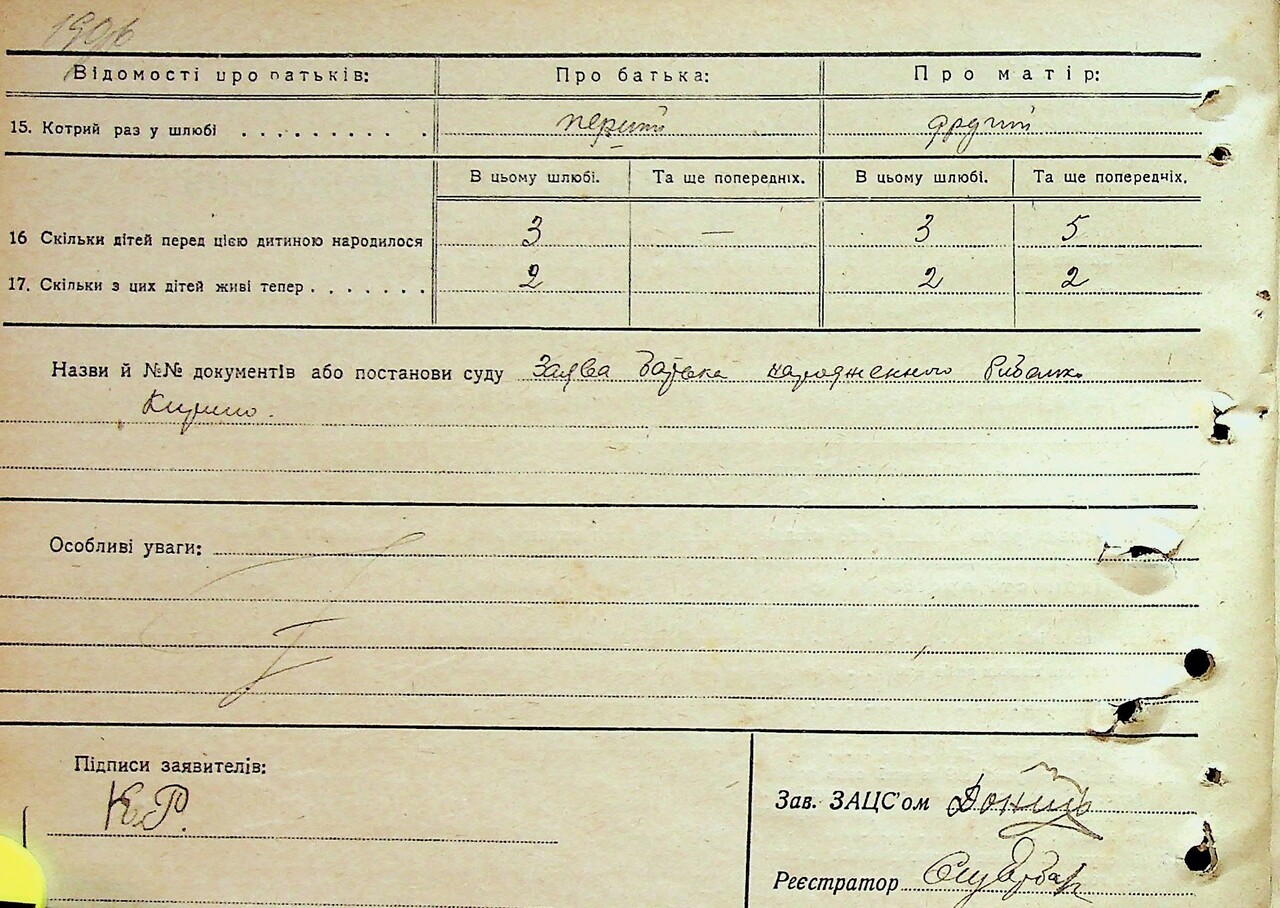 1906
Відомості про батьків: Про батька: Про матір:
15. Котрий раз у шлюбі . . . . . . . . . . перший другий
В цьому шлюбі. Та ще попередніх. В цьому шлюбі. Та ще попередніх.
16 Скільки дітей перед цією дитиною народилося 3 — 3 5
17. Скільки з цих дітей живі тепер . . . . . . . 2 2 2
Назви й №№ документів або постанови суду Заява батька народженного Рибалко
Кирило.
Особливі уваги:
Підписи заявителів:
К.Р.
Зав. ЗАЦС'ом
Реєстратор